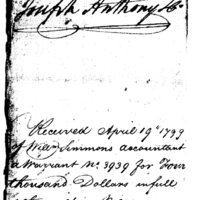 Joseph Anthony &c.
Received April 19th 1799
of Willm Simmons accountant
a Warrant No. 3939 for Four
thousand Dollars in full